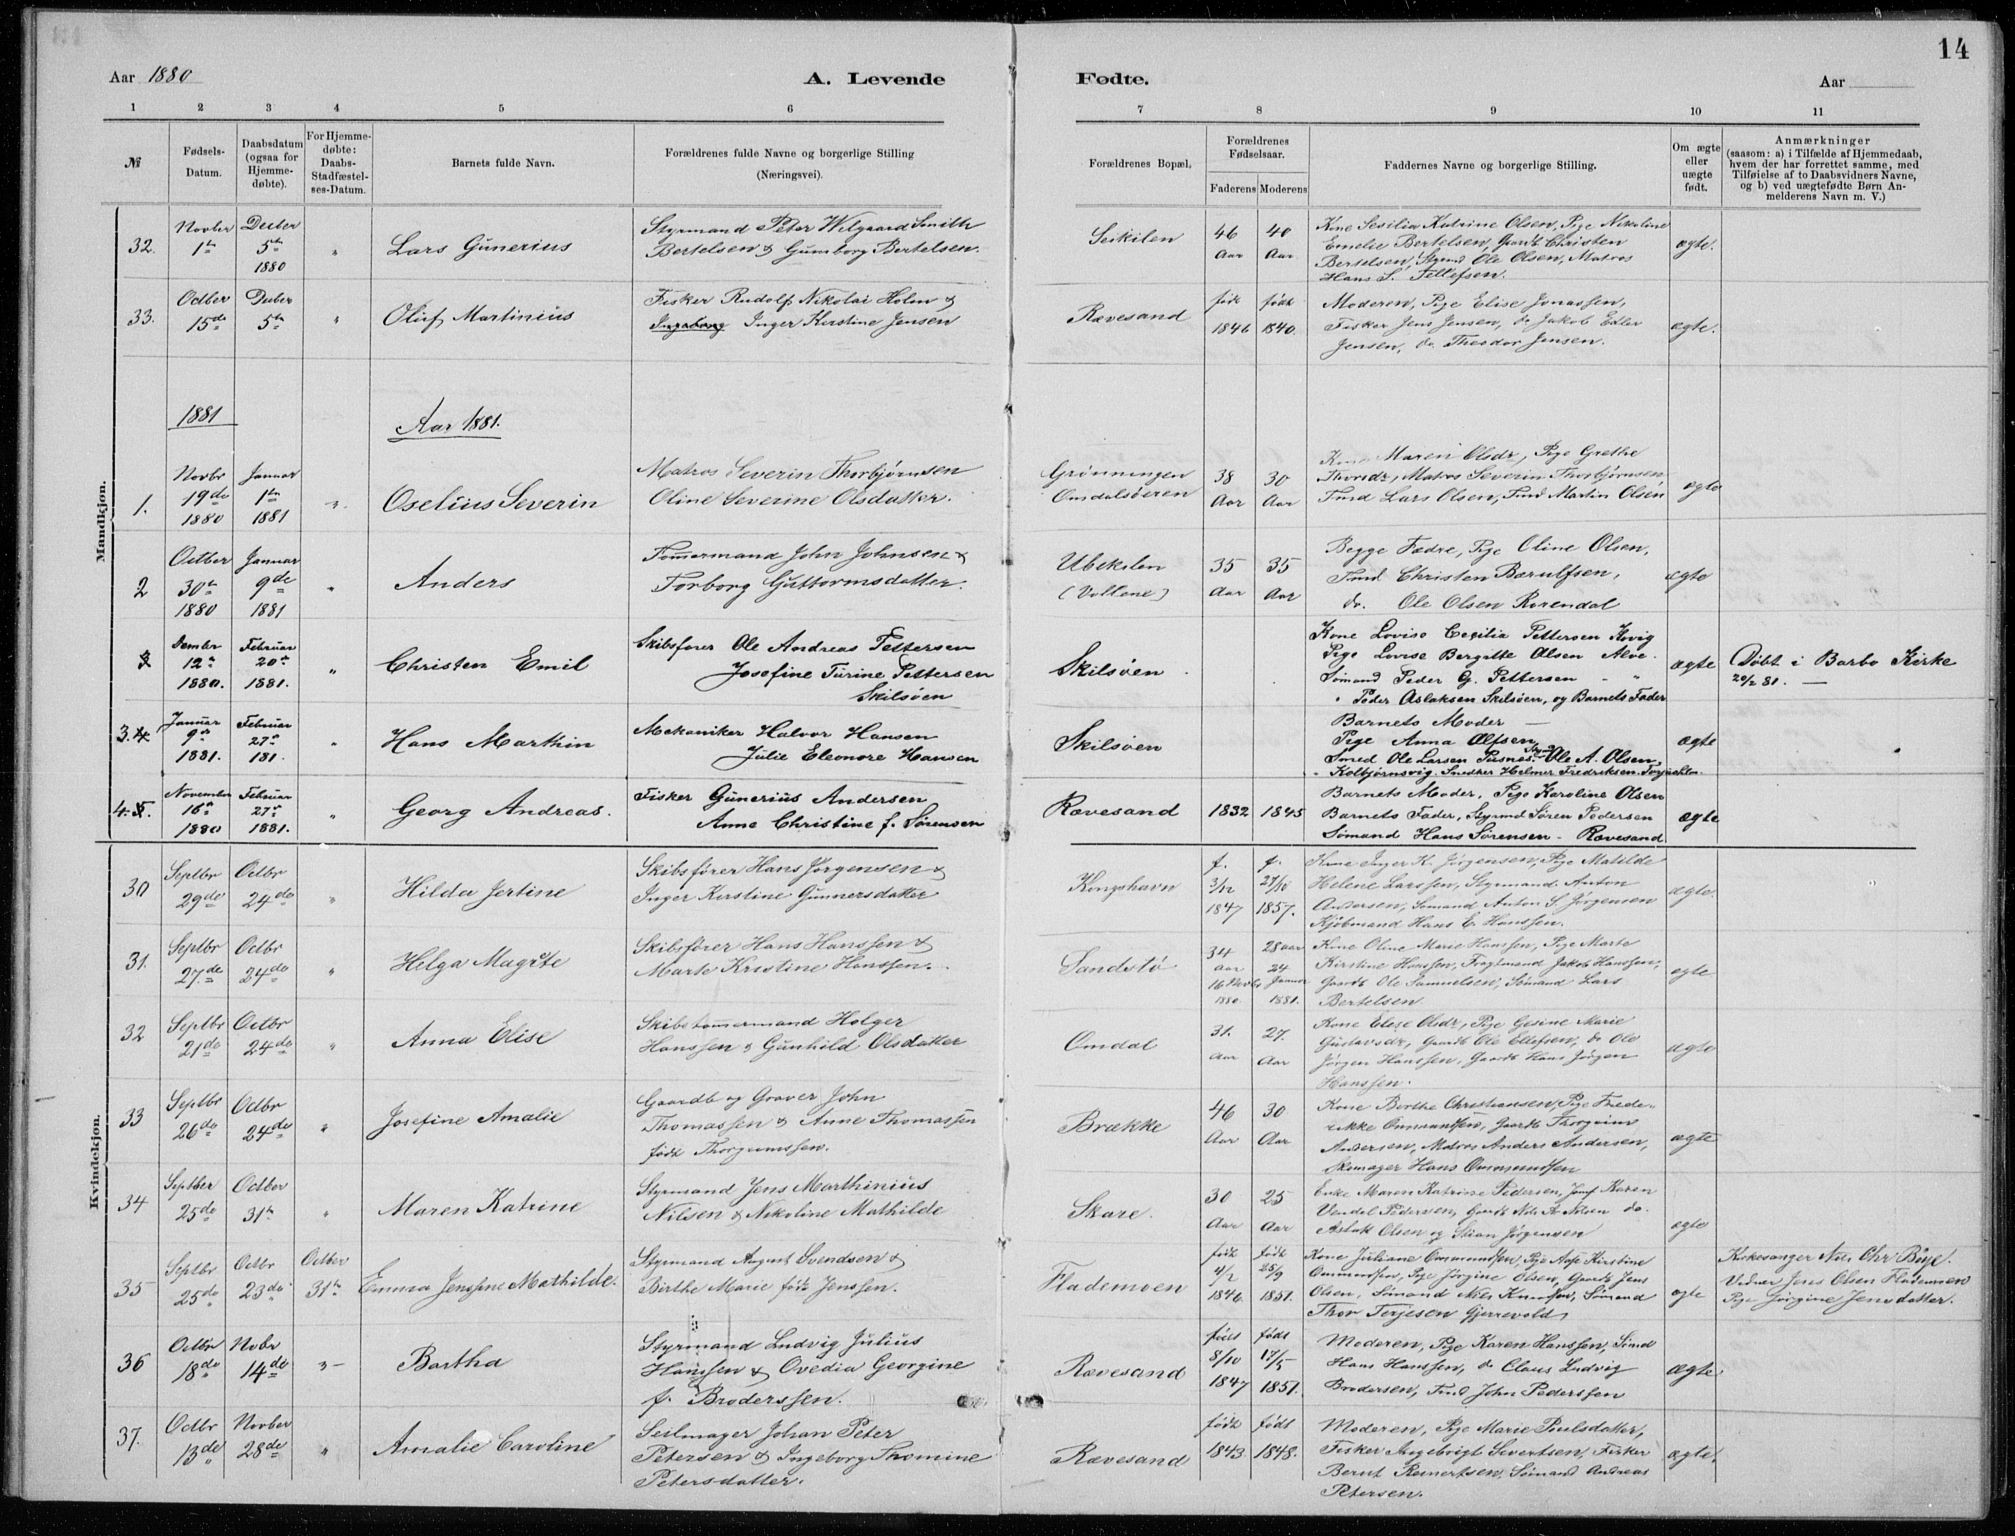 14
Aar 1880
A. Levende
Fødte.
Aar
1 2 3 4 5 6 7 8 9 10 11
№
Fødsels-
Datum.
Daabsdatum
(ogsaa for
Hjemme-
døbte).
For Hjemme-
døbte:
Daabs-
Stadfæstel-
ses-Datum.
Barnets fulde Navn.
Forældrenes fulde Navne og borgerlige Stilling
(Næringsvei).
Forældrenes Bopæl.
Forældrenes
Fødselsaar.
Faderens
Moderens
Faddernes Navne og borgerlige Stilling.
Om ægte
eller
uægte
født.
Anmærkninger
(saasom: a) i Tilfælde af Hjemmedaab,
hvem der har forrettet samme, med
Tilføielse af to Daabsvidners Navne,
og b) ved uægtefødte Børn An-
melderens Navn m. V.)
Mandkjøn.
32.
Novber
1te
Decber
5te
1880
"
Lars Gunerius
Styrmand Peter Wilgaard Smith
Bertelsen & Gunborg Bertelsen.
Seikilen
46
Aar
40
Aar
Kone Sesilia Katrine Olsen, Pige Nikoline
Emelie Bertelsen, Gaardb Christen
Bertelsen, Styrmd Ole Olsen, Matros
Hans S. Tellefsen.
ægte.
33.
Octber
15de
Decber
5te
"
Oluf Martinius
Fisker Rudolf Nikolai Holm &
Ingeborg Inger Kirstine Jensen
Rævesand
født
1846
født
1840.
Moderen, Pige Elise Jonassen,
Fisker Jens Jensen, do Jakob Edler
Jensen, do Theodor Jensen.
ægte.
1881
Aar 1881.
1.
Novbr
19de
1880
Januar
1te
1881
"
Oselius Severin
Matros Severin Thorbjørnsen
Oline Severine Olsdatter.
Grønningen
Omdalsøeren
38
Aar
30
Aar
Kone Maren Olsdr, Pige Grethe
Thorsdr, Matros Severin Thorbjørnsen
Smd Lars Olsen, Smd Martin Olsen
ægte
2
Octber
30te
1880
Januar
9de
1881
"
Anders
Tømermand John Johnsen &
Torborg Guttormsdatter.
Ubekilen
(Vollene)
35
Aar
35
Aar
Begge Fædre, Pige Oline Olsen,
Smd Christen Bærulfsen,
do. Ole Olsen Rosendal
ægte
3
Dember
12te
1880.
Februar
20de
1881.
"
Christen Emil
Skibsfører Ole Andreas Pettersen
Josefine Turine Pettersen
Skilsøen
Skilsøen
Kone Lovise Cecilia Pettersen Kovig
Pige Lovise Bergitte Olsen Alve.
Sømand Peder G. Pettersen - "
" Peder Aslaksen Skilsøen, og Barnets Fader
ægte
Døbt i Barbo Kirke
20/2 81. —
3. 4
Januar
9de
1881.
Februar
27de
181.
"
Hans Marthin
Mekaniker Halvor Hansen
Julie Eleonore Hansen
Skilsøen
Barnets Moder —
Pige Anna Olfsen
Smed Ole Larsen Pusnes, Styrmd Ole A. Olsen,
" Kolbjørnsvig. Snedker Helmer Fredriksen
ægte
4. 5.
November
16de
1880
Februar
27de
1881.
"
Georg Andreas.
Fisker Gunerius Andersen
Anne Christine f. Sørensen
Rævesand
1832
1845
Barnets Moder, Pige Karoline Olsen
Barnets Fader, Styrmd Søren Pedersen
Sømand Hans Sørensen - Rævesand
ægte
Kvindekjøn.
30
Septbr
29de
Octbr
24de
"
Hilda Jertine
Skibsfører Hans Jørgensen &
Inger Kirstine Gunnersdatter
Kongshavn
f.
3/12
1847
f.
27/10
1857.
Kone Inger K. Jørgensen, Pige Matilde
Helene Larssen, Styrmand Anton
Andersen, Sømand Anton S. Jørgensen
Kjøbmand Hans E. Hanssen.
ægte.
31.
Septbr
27.de
Octbr
24de
"
Helga Magrete
Skibsfører Hans Hanssen &
Marte Kristine Hanssen.
Sandstø
34
aar
16 Novbr
1880.
28 aar
24
Januar
1881.
Kone Oline Marie Hanssen, Pige Marte
Kirstine Hanssen, Jakob Hanssen,
Gaardb Ole Samuelsen, Sømand Lars
Bertelsen
ægte
32
Septbr
21de
Octbr
24de
"
Anna Elise
Skibstømermand Holger
Hanssen & Gunhild Olsdatter
Omdal
31.
aar
27.
Aar
Kone Elese Olsdr, Pige Gesine Marie
Gustavsdr, Gaardb Ole Ellefsen, do Ole
Jørgen Hanssen, Gaardb Hans Jørgen
Hanssen.
ægte
33
Septbr
26de
Octbr
24de
"
Josefine Amalie
Gaardb og Graver John
Thomassen & Anne Thomassen
født Thorgrimssen.
Brække
46
Aar
30
Aar
Kone Berthe Christiansen, Pige Frede-
rikke Ommundsen, Gaardb Thorgrim
Andersen, Matros Anders Andersen,
Skomager Hans Ommundsen
ægte
34
Septber
25de
Octber
31te
"
Maren Katrine
Styrmand Jens Marthinius
Nilsen & Nikoline Mathilde
Skare.
30
Aar
25
Aar
Enke Maren Katrine Pedersen, Jomf Karen
Vendel Pedersen, Gaardb Nils A. Nilsen do.
Aslak Olsen og Stian Jørgensen
ægte
35
Septbr
25de
Octbr
23de
Octber
31te
Emma Jenssine Mathilde.
Styrmand August Svendsen &
Birthe Marie født Jenssen.
Flademoen
født
4/2
1846.
født
25/9
1851.
Kone Juliane Ommundsen, Pige Aase Kirstine
Ommundsen, Pige Jørgine Olsen, Gaardb Jens
Olsen, Sømand Nils Knudsen, Sømand
Thor Terjesen Gjerrevold
ægte
Kirkesanger Nils Chr Bøye.
Vidner Jens Olsen Flademoen
Pige Jørgine Jensdatter.
36
Octbr
18de
Nobr
14de
"
Bartha
Styrmand Ludvig Julius
Hanssen & Ovedia Georgine
f. Broderssen.
Rævesand
født
8/10
1847
født
17/5
1851.
Moderen, Pige Karen Hanssen, Sømd
Hans Hanssen, do Claus Ludvig
Brodersen, Smd John Pederssen
ægte.
37.
Octbr
13de
Novber
28de
"
Amalie Caroline
Seilmager Johan Peter
Petersen & Ingeborg Thomine
Petersdatter.
Rævesand
født
1843
født
1848.
Moderen, Pige Marie Poulsdatter,
Fisker Ingebrigt Sivertsen, Fisker
Bernt Reinertsen, Sømand Andreas
Petersen.
ægte.